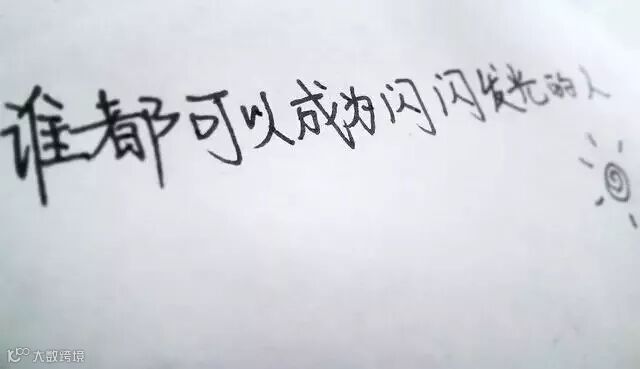 谁都可以成为闪闪发光的人
大数跨境